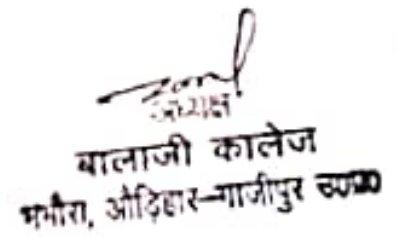 अध्यक्ष
बालाजी कालेज
भभौरा, औड़िहार-गाजीपुर उ०प्र०